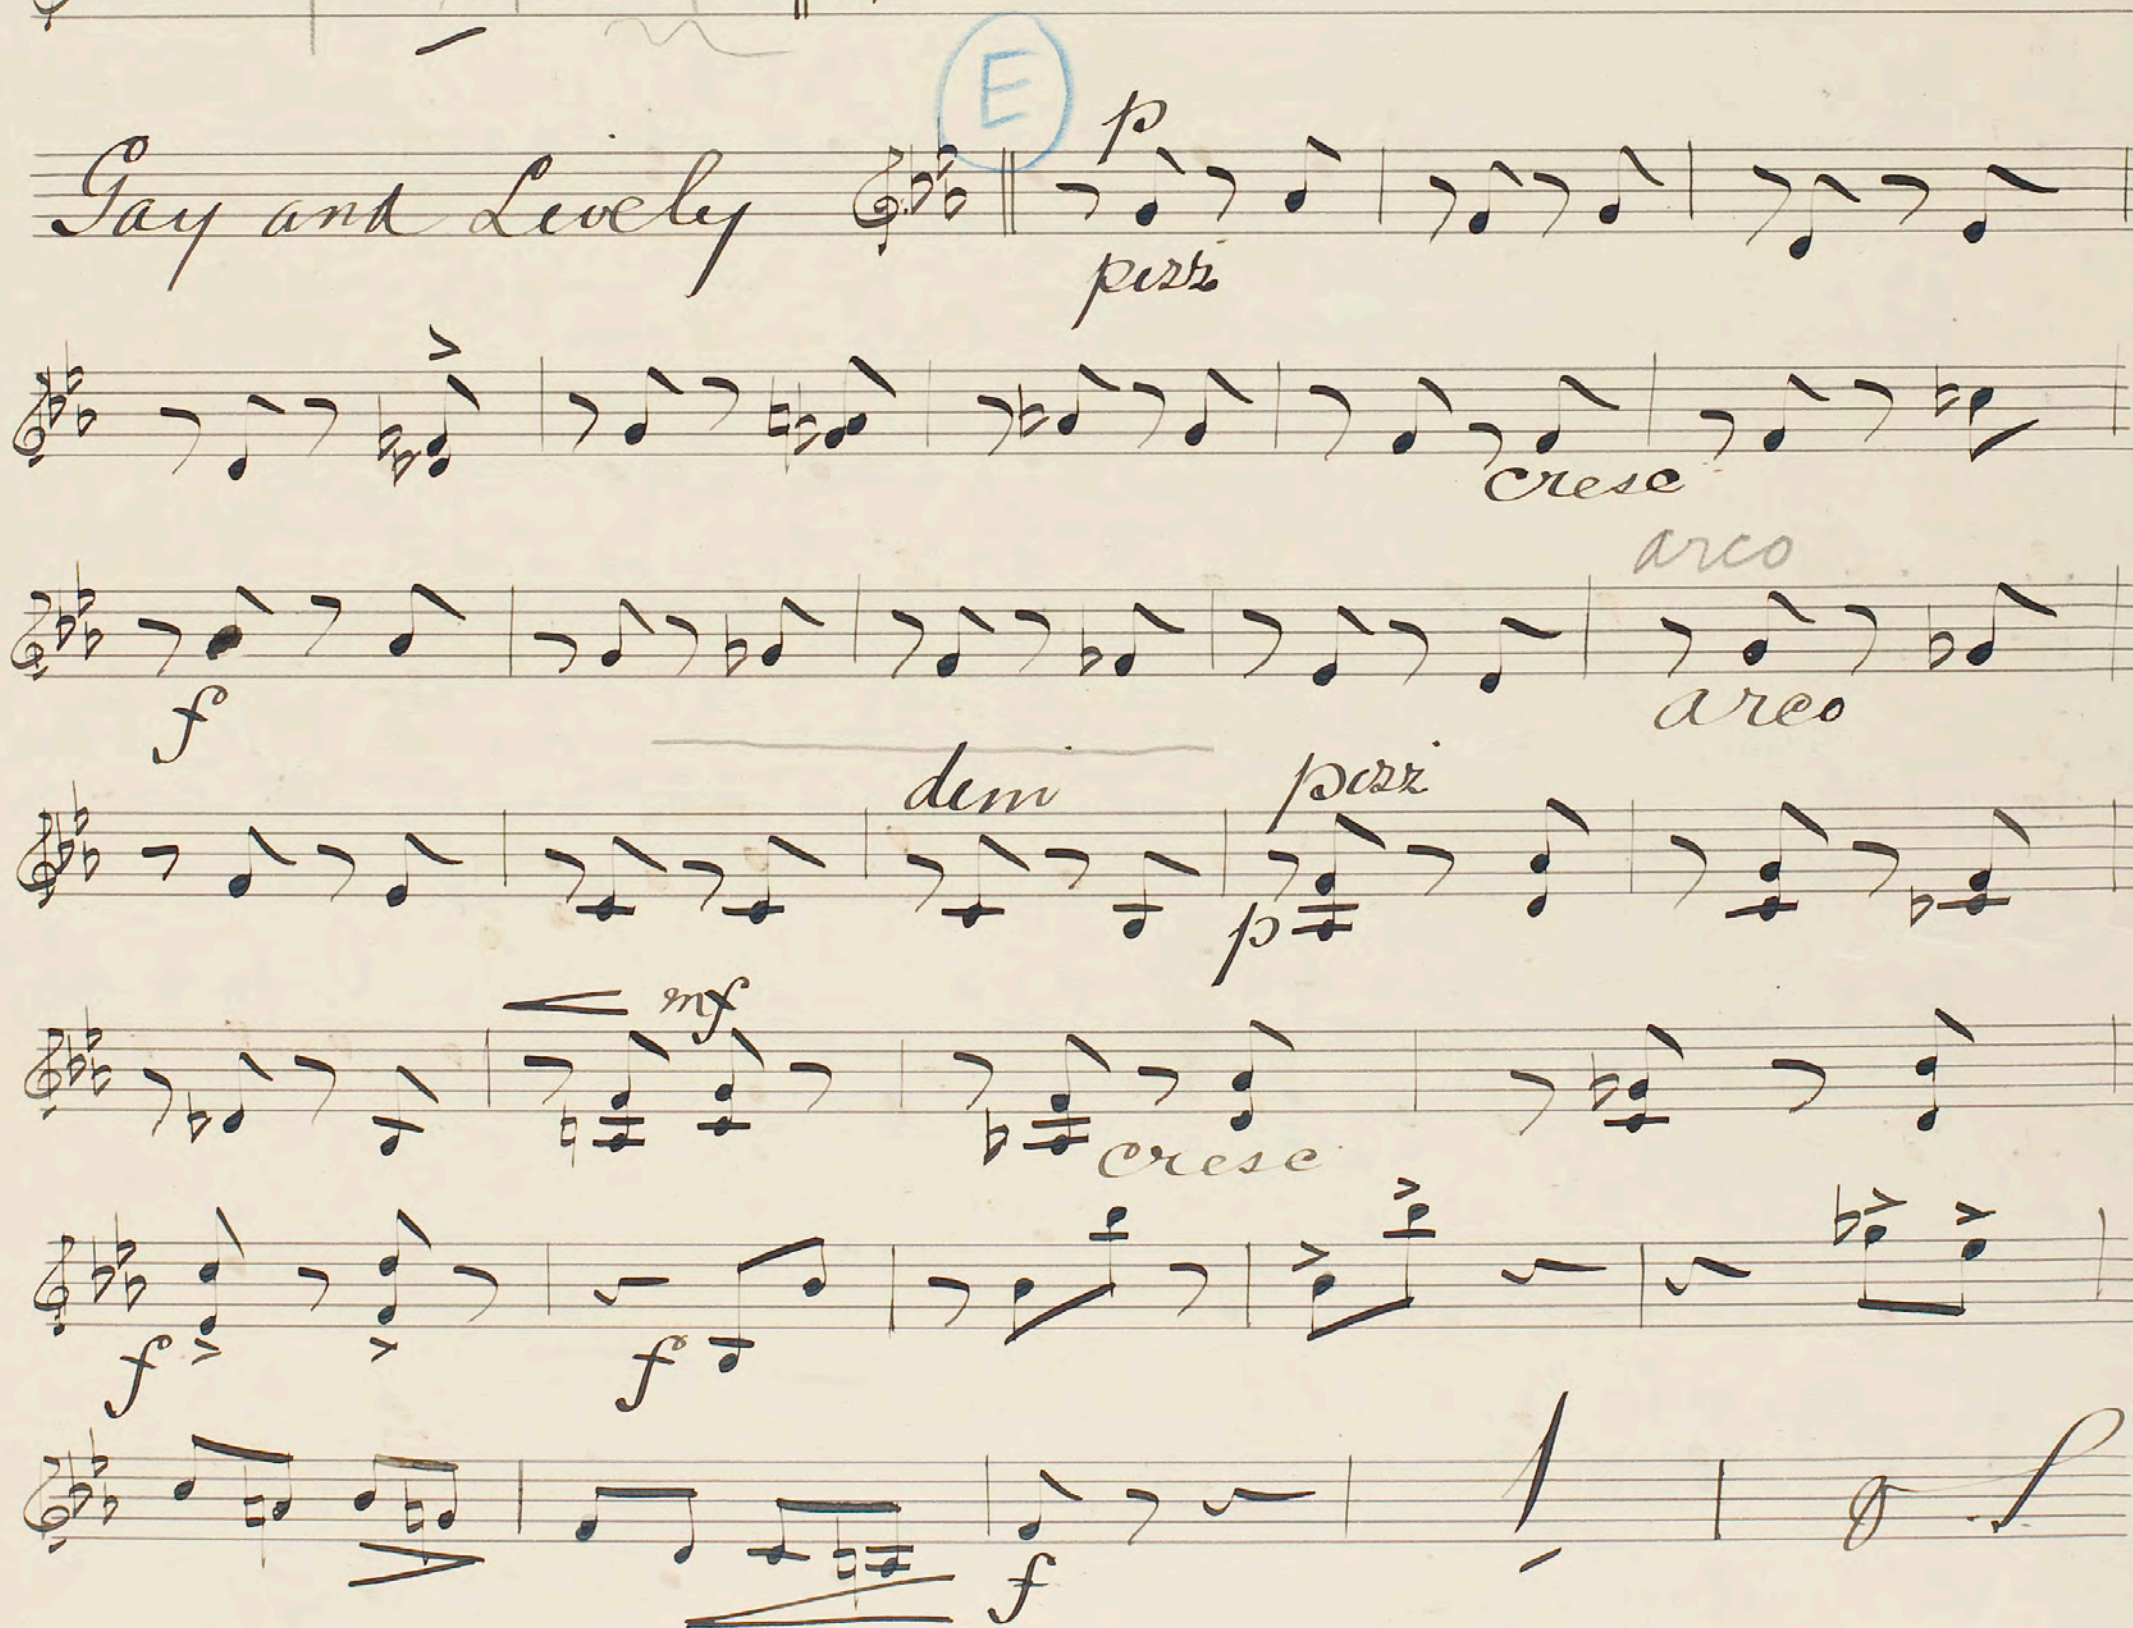 E
p
Gay and Lively
pizz
cresc
arco
f
arco
dim
pizz
p
mf
cresc
f
f
f